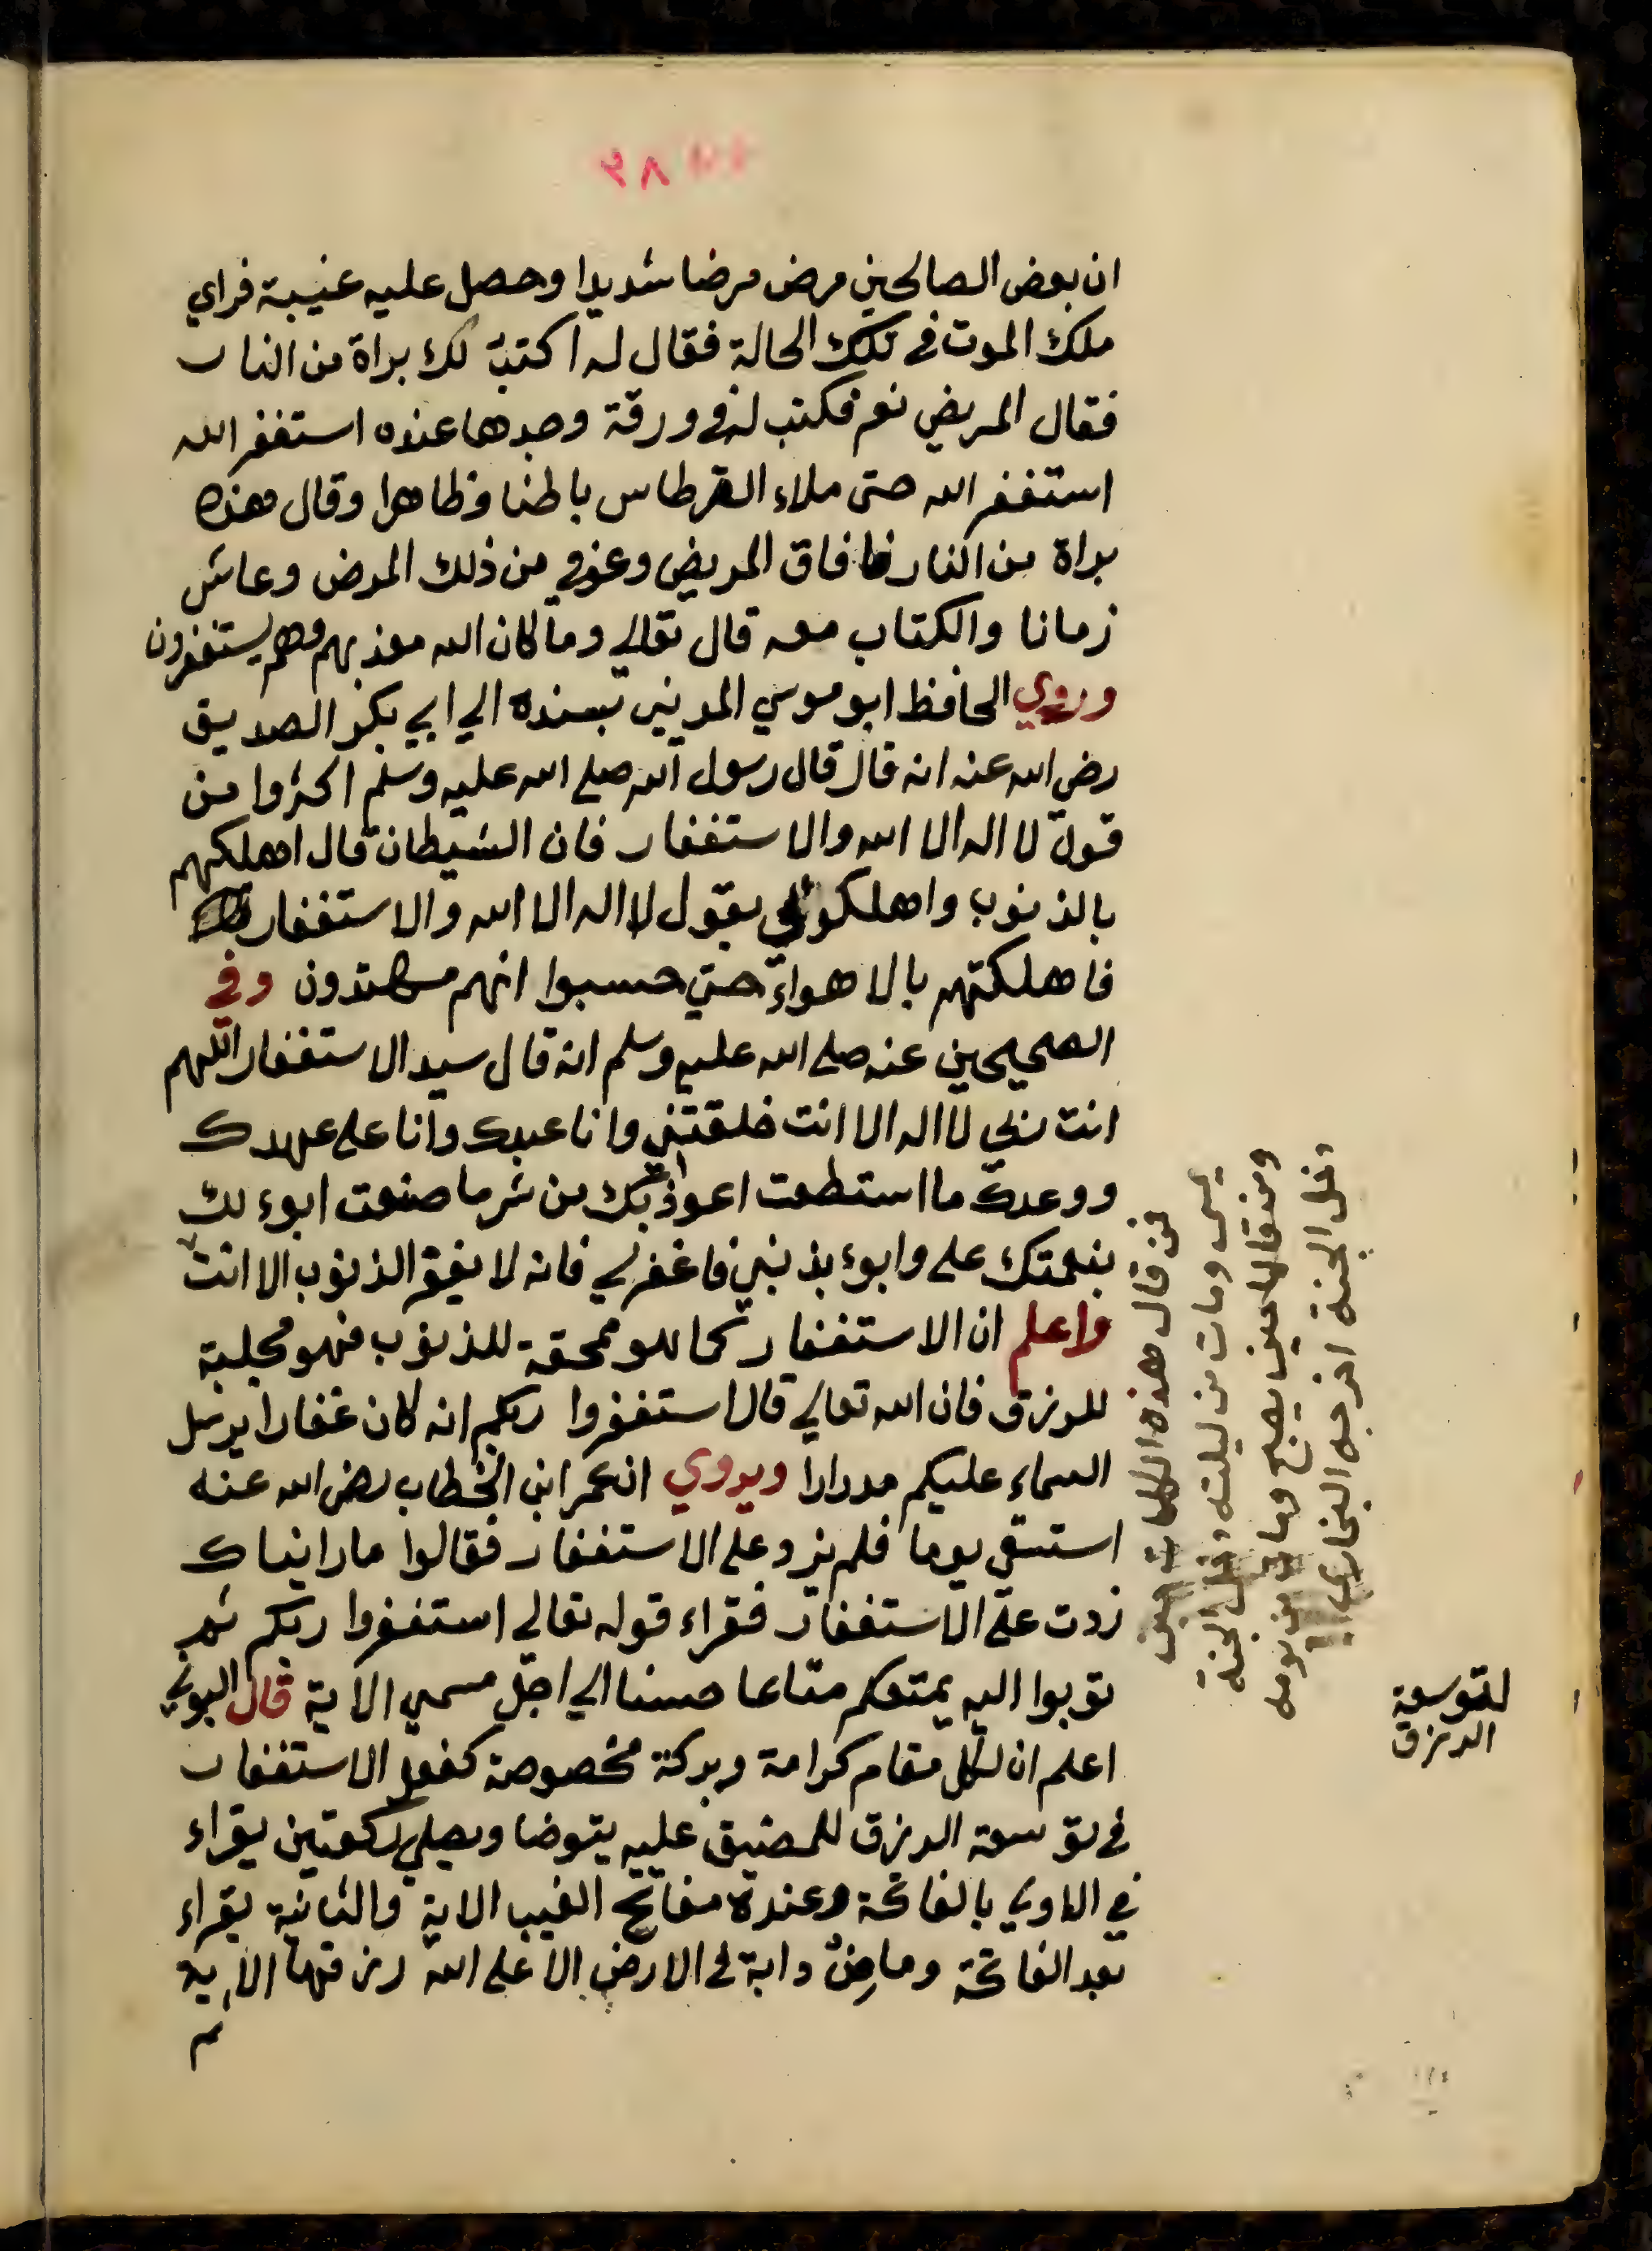 ٣٨
ان بعض الصالحين مرض مرضا شديدا وحصل عليه غيبة فراي
ملك الموت في تلك الحالة فقال له اكتب لك براة من النار
فقال المريض نعم فكتب له في ورقة وجدها عنده استغفر الله
استغفر الله حتى ملاء القرطاس باطنا وظاهرا وقال هذه
براة من النار فافاق المريض وعوفي من ذلك المرض وعاش
زمانا والكتاب معه قال تعالي وما كان الله معذبهم وهم يستغفرون
وروي الحافظ ابو موسي المديني بسنده الي ابي بكر الصديق
رضي الله عنه انه قال قال رسول الله صلي الله عليه وسلم اكثروا من
قول لا اله الا الله والاستغفار فان الشيطان قال اهلكتهم
بالذنوب واهلكوني بقول لا اله الا الله والاستغفار
فاهلكتهم بالاهواء حتي حسبوا انهم مهتدون وفي
الصحيحين عنه صلي الله عليه وسلم انه قال سيد الاستغفار اللهم
انت ربي لا اله الا انت خلقتني وانا عبدك وانا علي عهدك
ووعدك ما استطعت اعوذ بك من شر ما صنعت ابوء لك
بنعمتك علي وابوء بذنبي فاغفر لي فانه لا يغفر الذنوب الا انت
واعلم ان الاستغفار كما هو ممحقة للذنوب فهو مجلبة
للرزق فان الله تعالي قال استغفروا ربكم انه كان غفارا يرسل
السماء عليكم مدرارا ويروي ان عمر ابن الخطاب رضي الله عنه
استسقي يوما فلم يزد علي الاستغفار فقالوا ما رايناك
زدت علي الاستغفار فقراء قوله تعالي استغفروا ربكم ثم
توبوا اليه يمتعكم متاعا حسنا الي اجل مسمي الاية قال البوني
اعلم ان لكل مقام كرامة وبركة مخصوصة كفعل الاستغفار
في توسعة الرزق للمضيق عليه يتوضا ويصلي ركعتين يقراء
في الاولي بالفاتحة وعنده مفاتح الغيب الاية والثانية يقراء
بعد الفاتحة وما من دابة في الارض الا علي الله رزقها الاية
ثم
فمن قال هذه الكلمات حين
يمسي ومات من ليلته دخل الجنة
ومن قالها حين يصبح ومات من يومه
دخل الجنة اخرجه البخاري
لتوسعة
الرزق